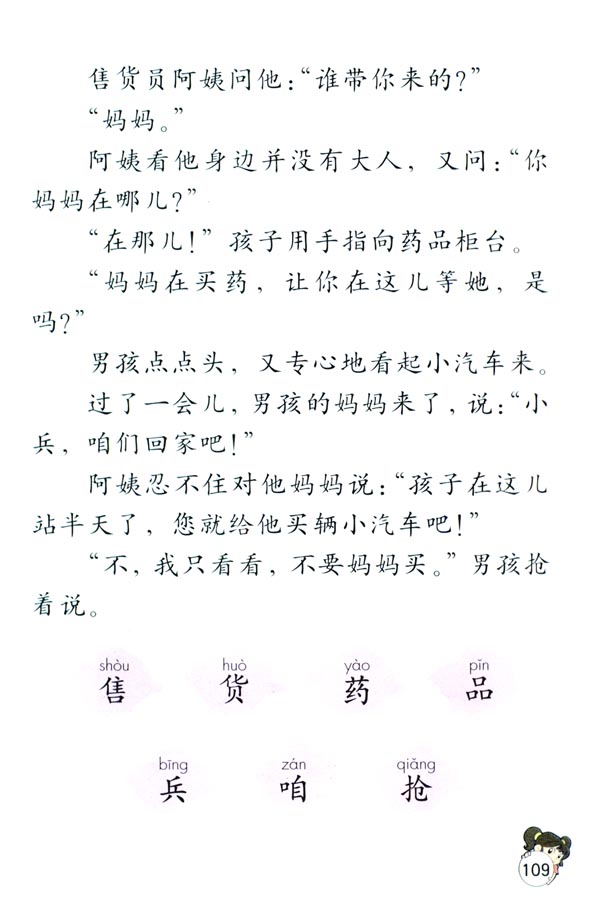 售货员阿姨问他：“谁带你来的？”
“妈妈。”
阿姨看他身边并没有大人，又问：“你
妈妈在哪儿？”
“在那儿！”孩子用手指向药品柜台。
“妈妈在买药，让你在这儿等她，是
吗？”
男孩点点头，又专心地看起小汽车来。
过了一会儿，男孩的妈妈来了，说：“小
兵，咱们回家吧！”
阿姨忍不住对他妈妈说：“孩子在这儿
站半天了，您就给他买辆小汽车吧！”
“不，我只看看，不要妈妈买。”男孩抢
着说。
shòu huò yào pǐn
售 货 药 品
bīng zán qiǎng
兵 咱 抢
109